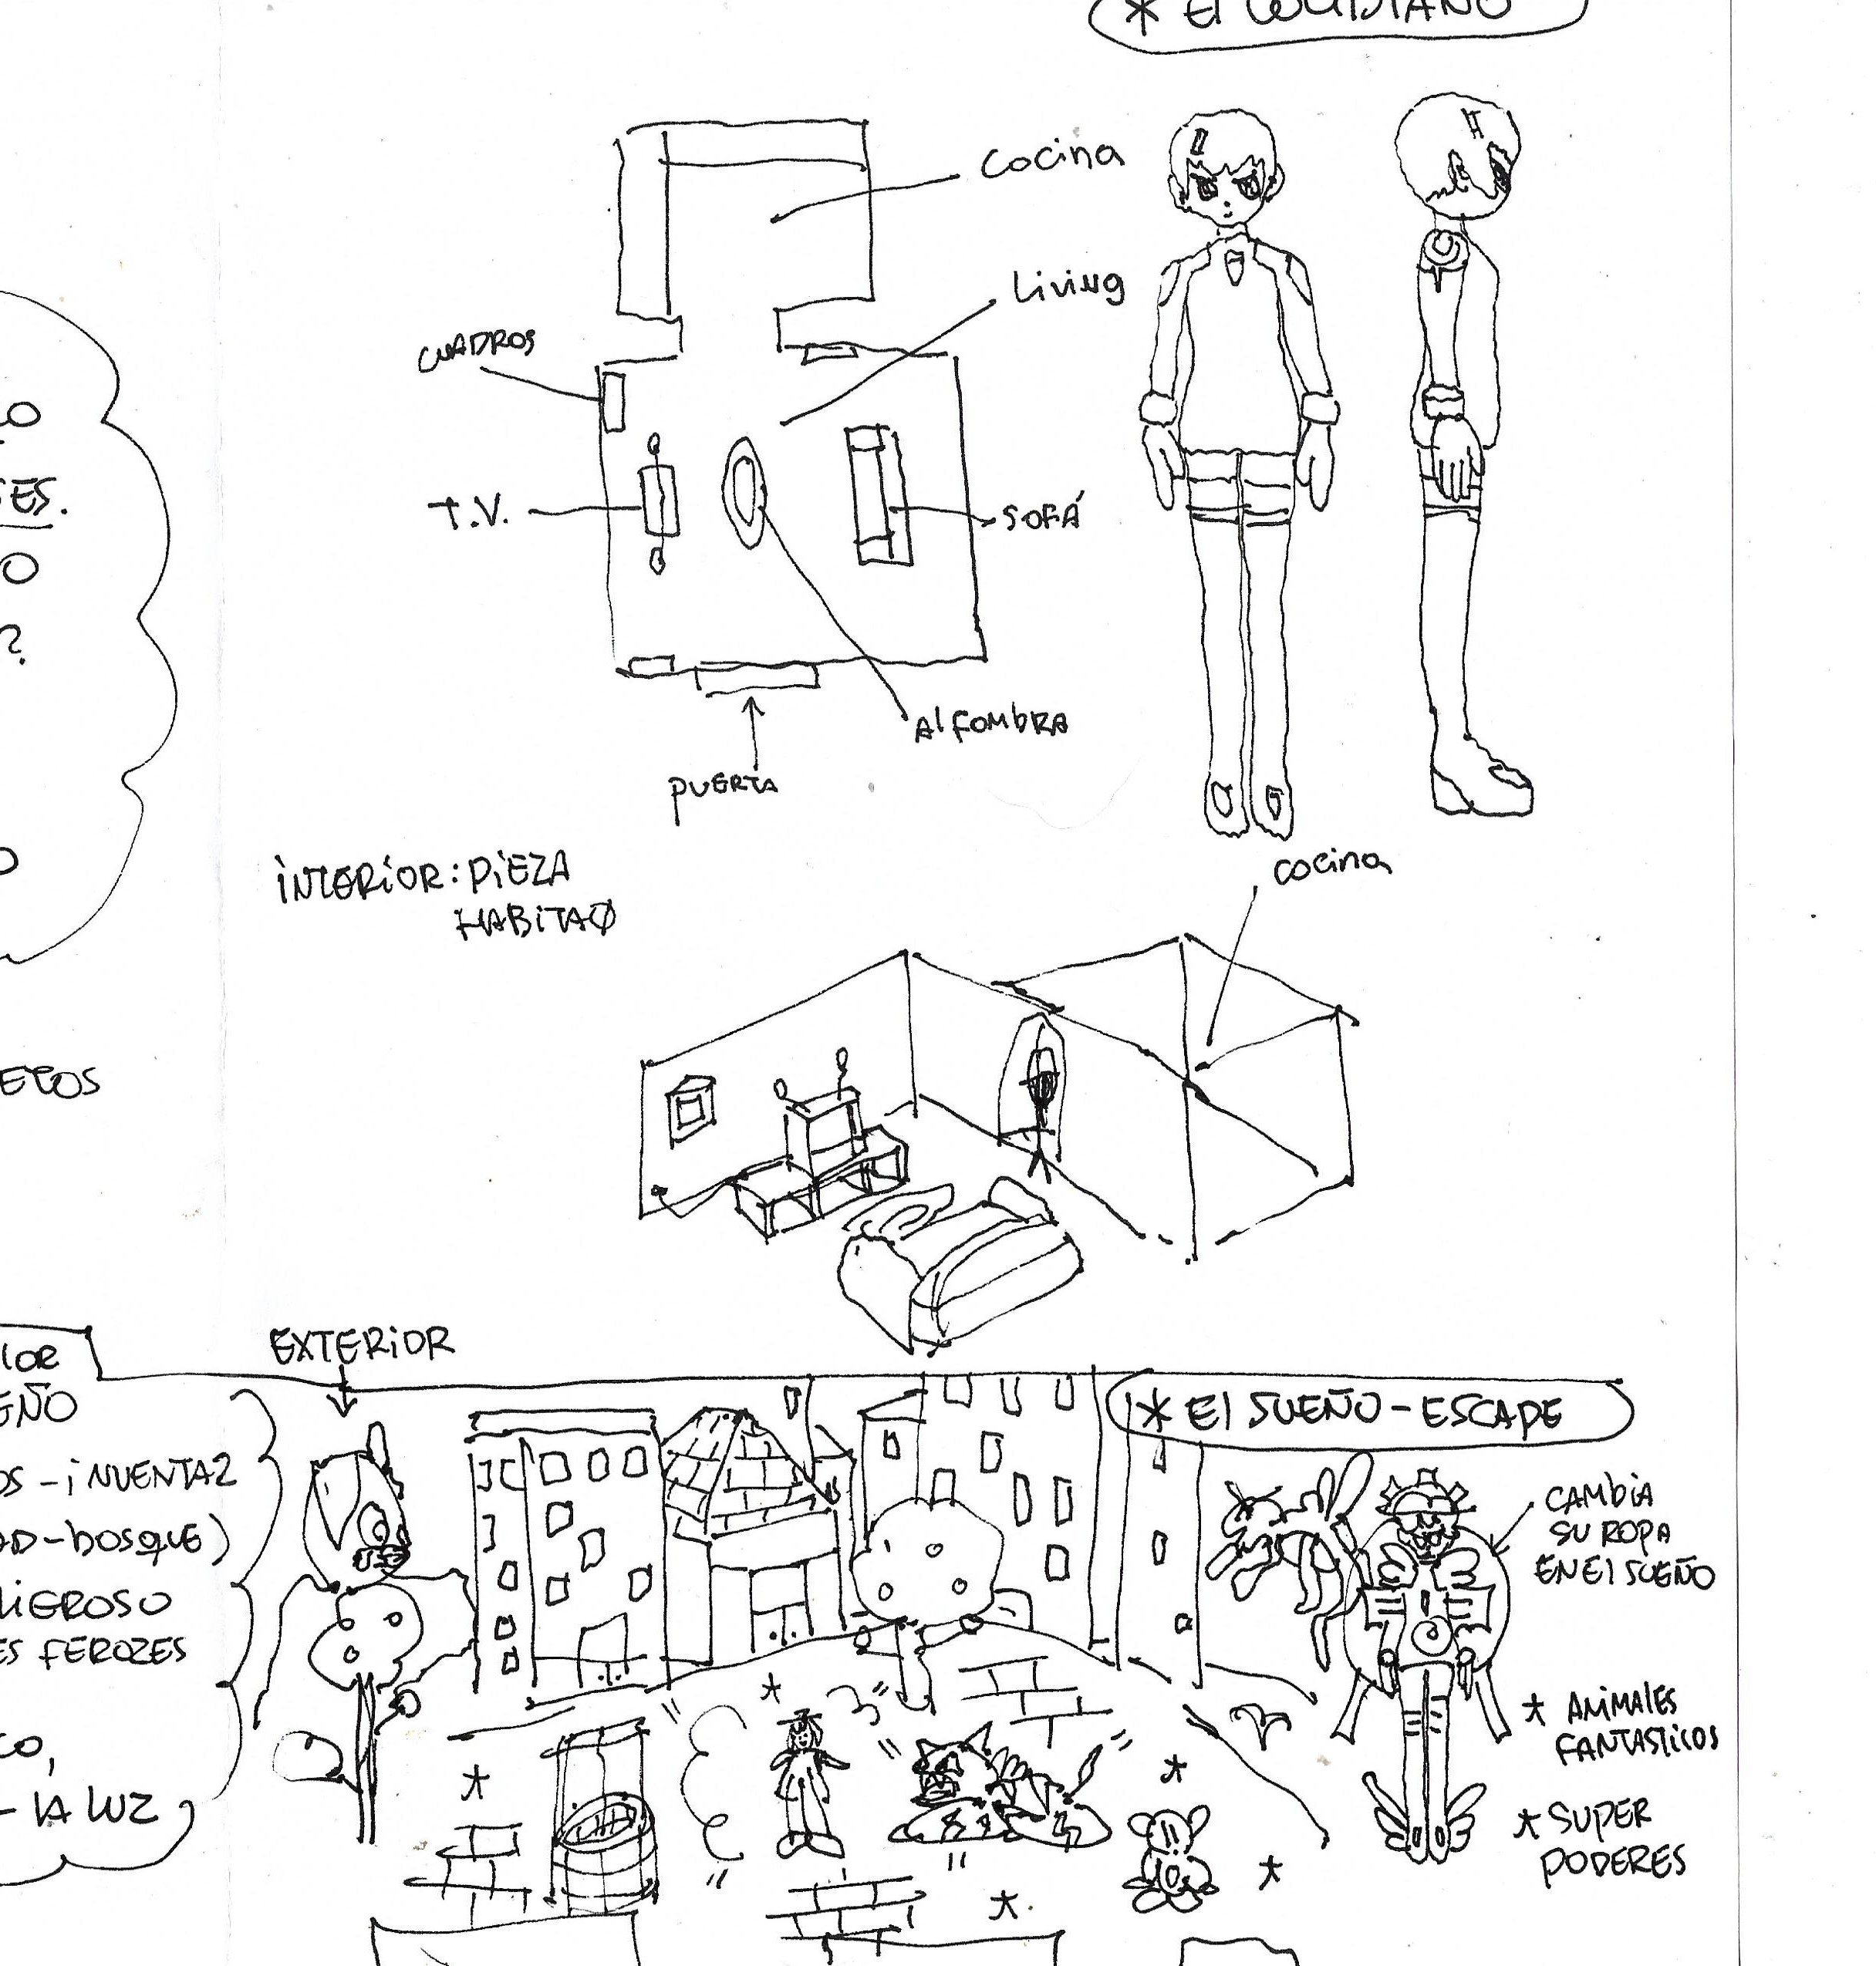 * El COTIDIANO
cocina
Living
CUADROS
T.V.
SOFÁ
AlfombRA
PUERTA
iNTERiOR: PiEZA
HABiTAO
cocina
EXTERiOR
* El SUEÑO-ESCAPE
CAMBiA
SU ROPA
EN El SUEÑO
* ANiMALES
FANTASTiCOS
* SUPER
PODERES
LO
SES.
O
?
O
ETOS
IOR
EÑO
OS - iNVENTAZ
AD-bOSQUE)
LiGROSO
ES FEROZES
CO,
- lA LUZ